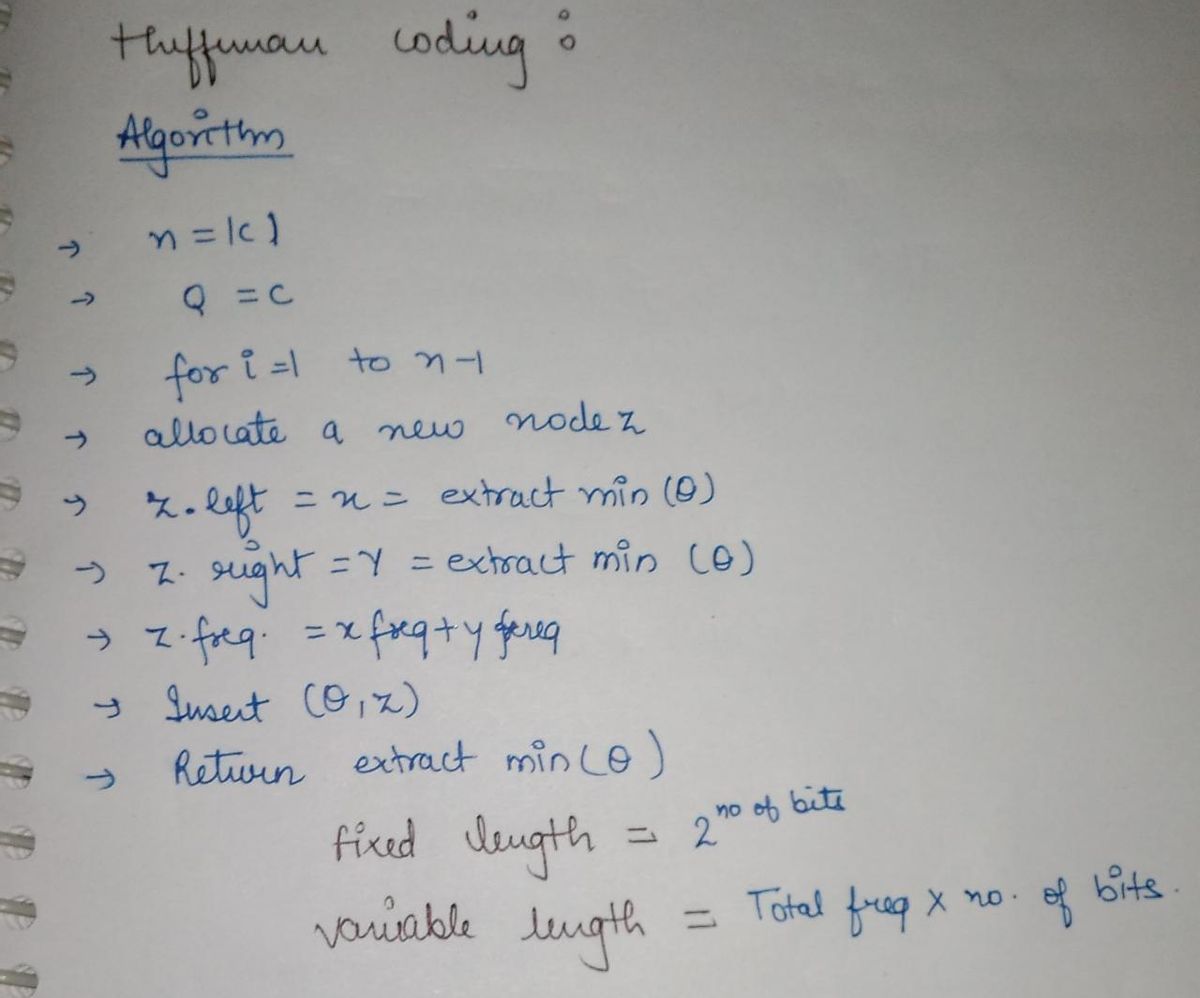 Huffman coding :
Algorithm
→ n = |c|
→ Q = c
→ for i = 1 to n-1
→ allocate a new node z
→ z.left = x = extract min (Q)
→ z. right = Y = extract min (Q)
→ z.freq. = x freq + y freq
→ Insert (Q, z)
→ Return extract min (Q)
fixed length = 2^no of bits
variable length = Total freq x no. of bits.